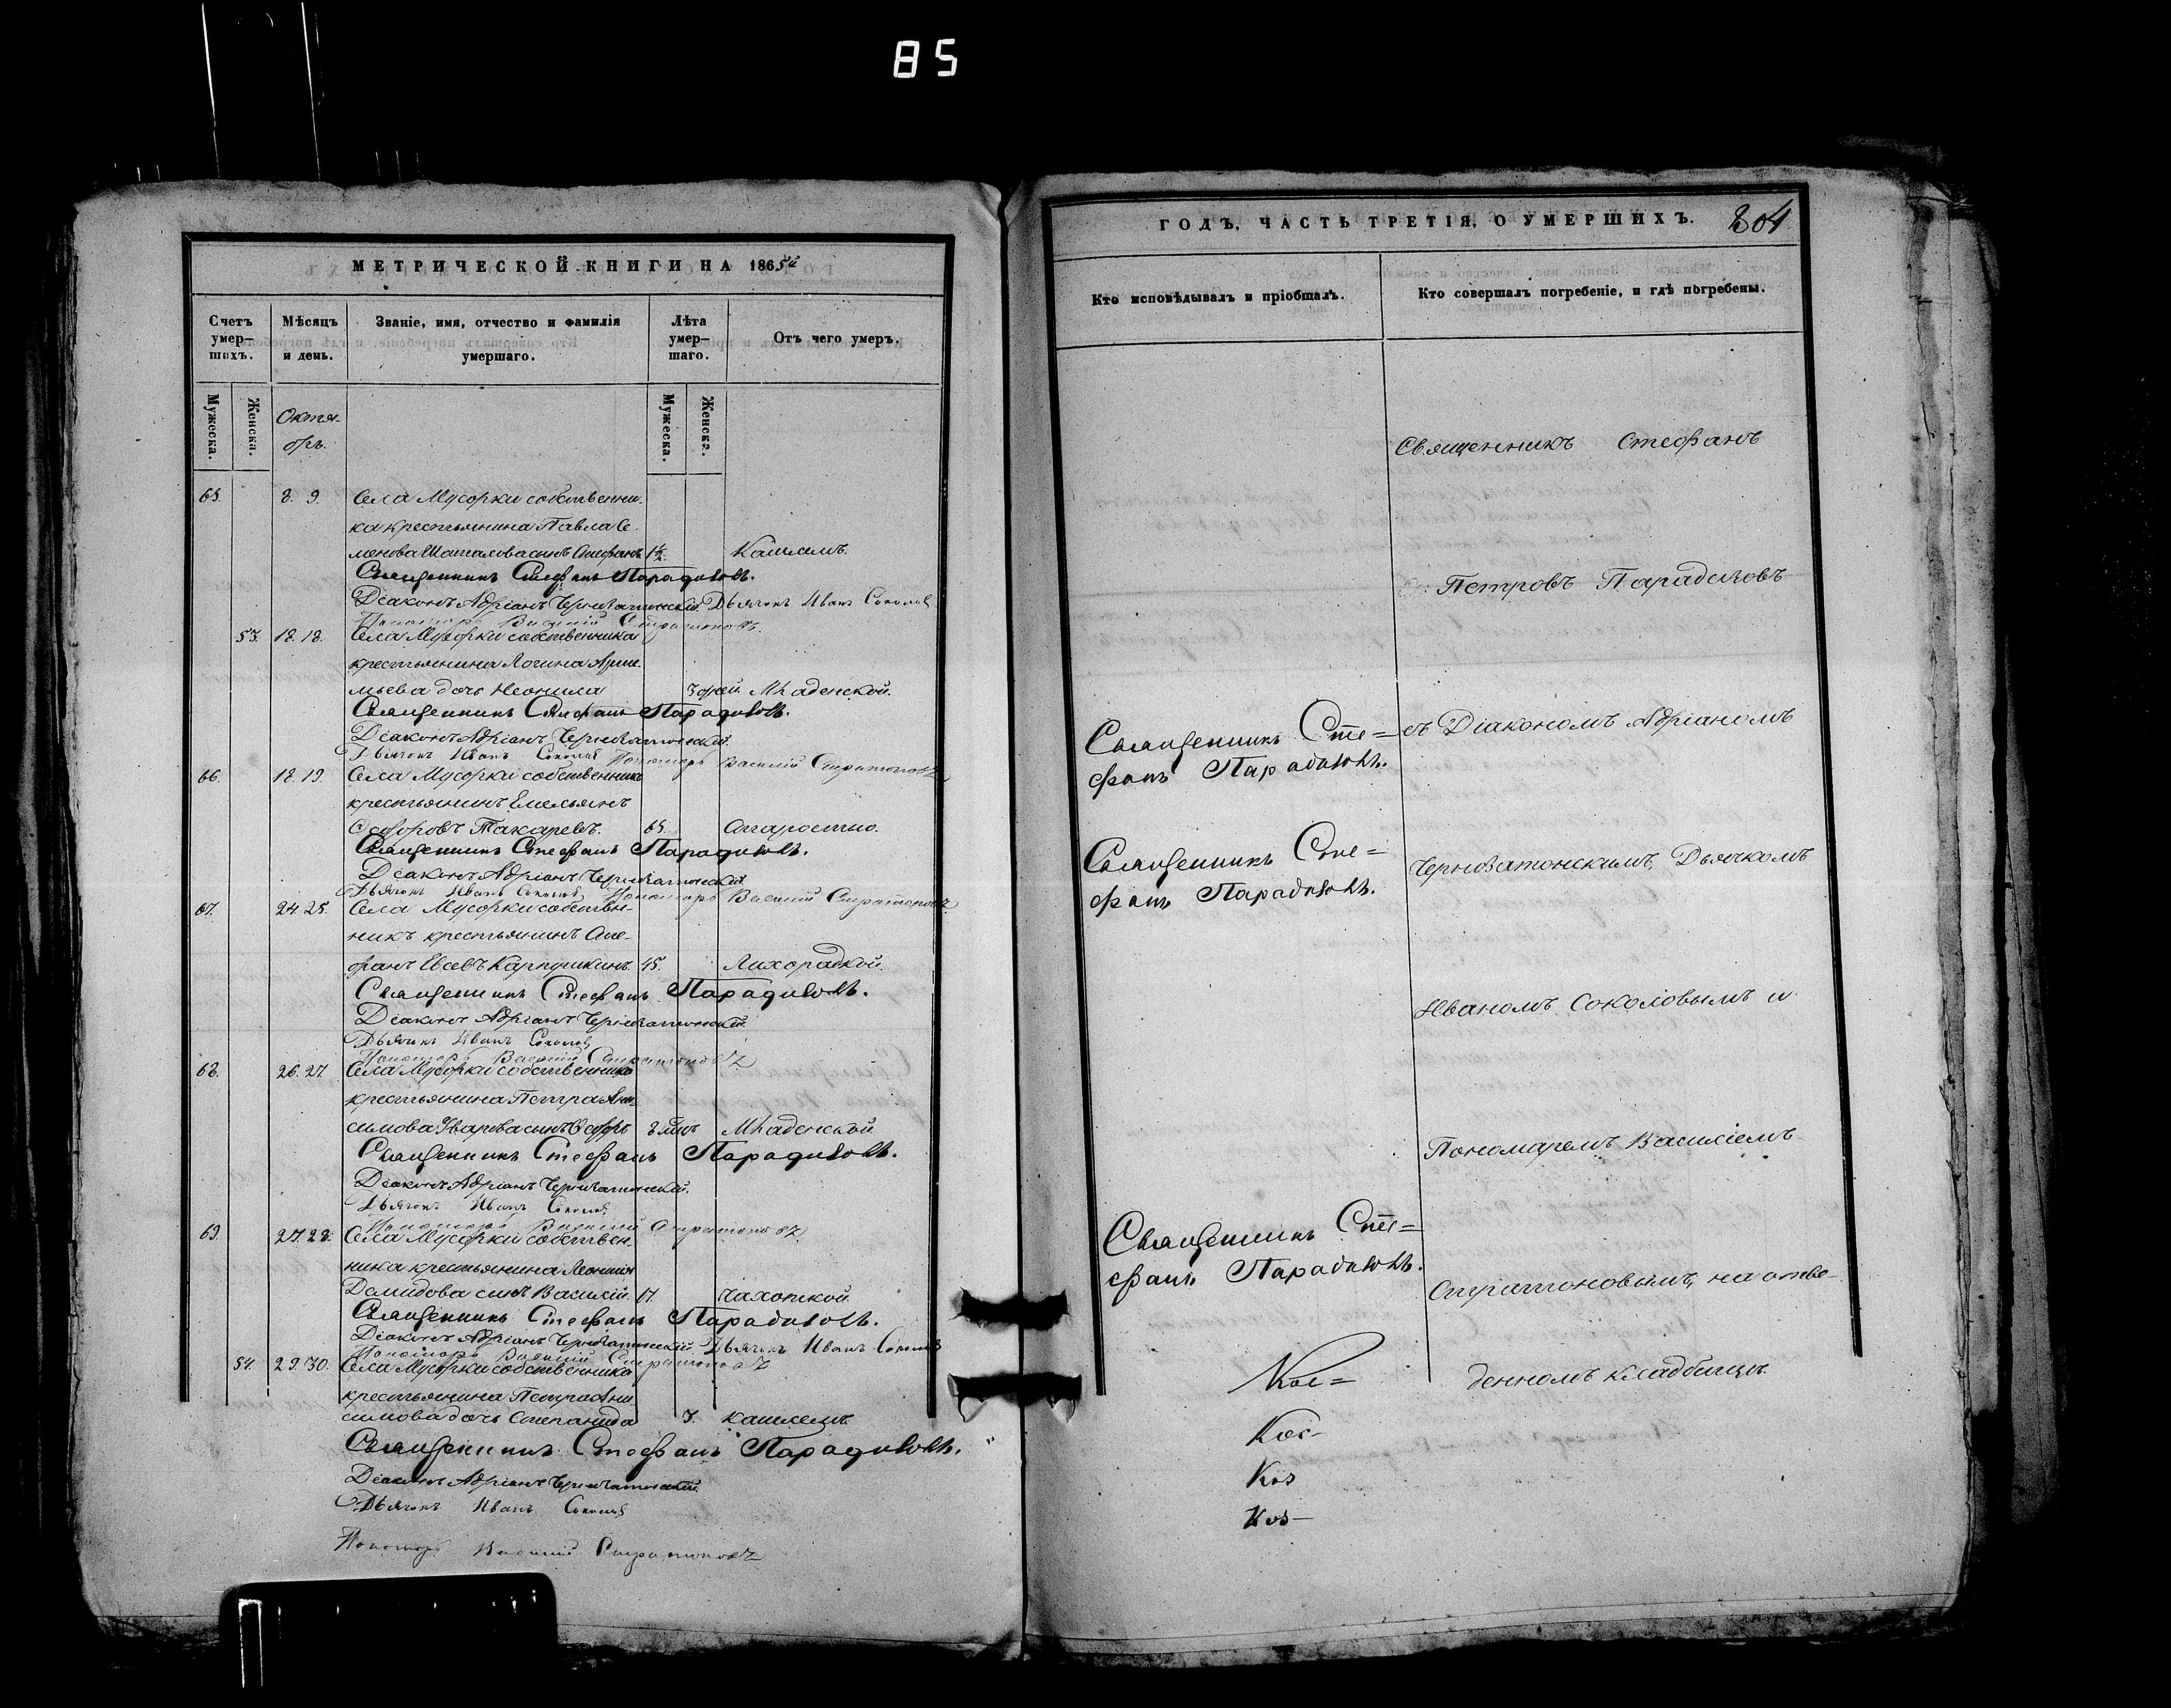 85
МЕТРИЧЕСКОЙ КНИГИ НА 1865й
Счетъ умер-шихъ.
Мѣсяцъ и день.
Званіе, имя, отчество и фамилія умершаго.
Лѣта умер-шаго.
Отъ чего умеръ.
Мужеска.
Женска.
Октя-
брь.
Мужеска.
Женска.
65. 8. 9. Села Мусорки собственни-
ка крестьянина Павла Се-
менова Шаталова сынъ Стефанъ 1½ Кашлемъ.
Священникъ Стефанъ Парадизовъ.
Діаконъ Адріанъ Чернозатонскій. Дьячекъ Иванъ Соколовъ
Пономарь Василій Стратоновъ.
53. 18. 18. Села Мусорки собственника
крестьянина Логина Арте-
мьева дочь Неонила 3 дней Младенской.
Священникъ Стефанъ Парадизовъ.
Діаконъ Адріанъ Чернозатонскій.
Дьячекъ Иванъ Соколовъ Пономарь Василій Стратоновъ
66. 18. 19. Села Мусорки собственникъ
крестьянинъ Емельянъ
Ѳедоровъ Токаревъ. 65. Старостію.
Священникъ Стефанъ Парадизовъ.
Діаконъ Адріанъ Чернозатонскій
Дьячекъ Иванъ Соколовъ Пономарь Василій Стратоновъ
67. 24. 25. Села Мусорки собствен-
никъ крестьянинъ Сте-
фанъ Евсевъ Карпушкинъ. 45. Лихорадкой.
Священникъ Стефанъ Парадизовъ.
Діаконъ Адріанъ Чернозатонскій.
Дьячекъ Иванъ Соколовъ
Пономарь Василій Стратоновъ
68. 26. 27. Села Мусорки собственника
крестьянина Петра Ани-
симова Уварова сынъ Ѳедоръ 8 м-цъ Младенской
Священникъ Стефанъ Парадизовъ.
Діаконъ Адріанъ Чернозатонскій.
Дьячекъ Иванъ Соколовъ
Пономарь Василій Стратоновъ
69. 27. 28. Села Мусорки собствен-
ника крестьянина Леонтія
Демидова сынъ Василій. 17. Чахоткой.
Священникъ Стефанъ Парадизовъ.
Діаконъ Адріанъ Чернозатонскій. Дьячекъ Иванъ Соколовъ
Пономарь Василій Стратоновъ
54. 29. 30. Села Мусорки собственника
крестьянина Петра Ани-
симова дочь Степанида 3. Кашлемъ
Священникъ Стефанъ Парадизовъ.
Діаконъ Адріанъ Чернозатонскій.
Дьячекъ Иванъ Соколовъ
Пономарь Василій Стратоновъ
ГОДЪ, ЧАСТЬ ТРЕТІЯ, О УМЕРШИХЪ. 804
Кто исповѣдывалъ и пріобщалъ.
Кто совершалъ погребеніе, и гдѣ погребены.
Священникъ Сте=
фанъ Парадизовъ.
Священникъ Сте=
фанъ Парадизовъ.
Священникъ Сте=
фанъ Парадизовъ.
Священникъ Стефанъ
Петровъ Парадизовъ
съ Діакономъ Адріаномъ
Чернозатонскимъ, Дьячкомъ
Иваномъ Соколовымъ и
Пономаремъ Василіемъ
Стратоновымъ, на отве-
денномъ кладбищѣ.